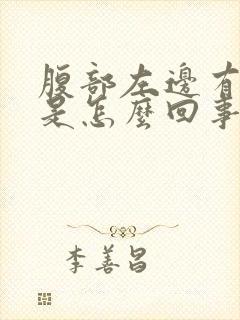 腹部左邊有
是怎麼回事
李善昌